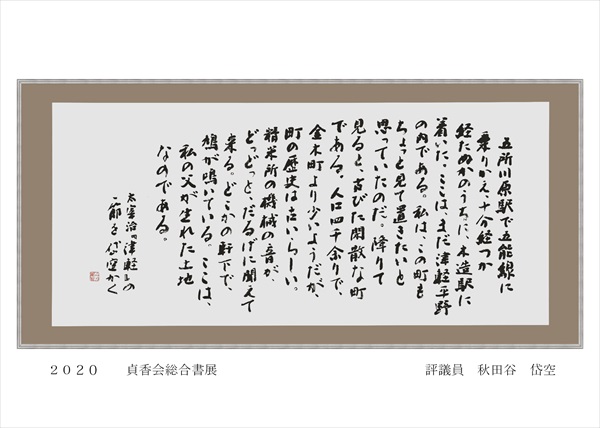 五所川原駅で五能線に
乗りかえ、十分経つか
経たぬかのうちに、木造駅に
着いた。ここは、まだ津軽平野
の内である。私は、この町も
ちょっと見て置きたいと
思っていたのだ。降りて
見ると、古びた閑散な町
である。人口四千余りで、
金木町より少いようだが、
町の歴史は古いらしい。
精米所の機械の音が、
どっどっと、だるげに聞えて
来る。どこかの軒下で、
鳩が鳴いている。ここは、
私の父が生れた土地
なのである。
太宰治『津軽』の
一節を 岱空かく
2020 貞香会総合書展
評議員 秋田谷 岱空